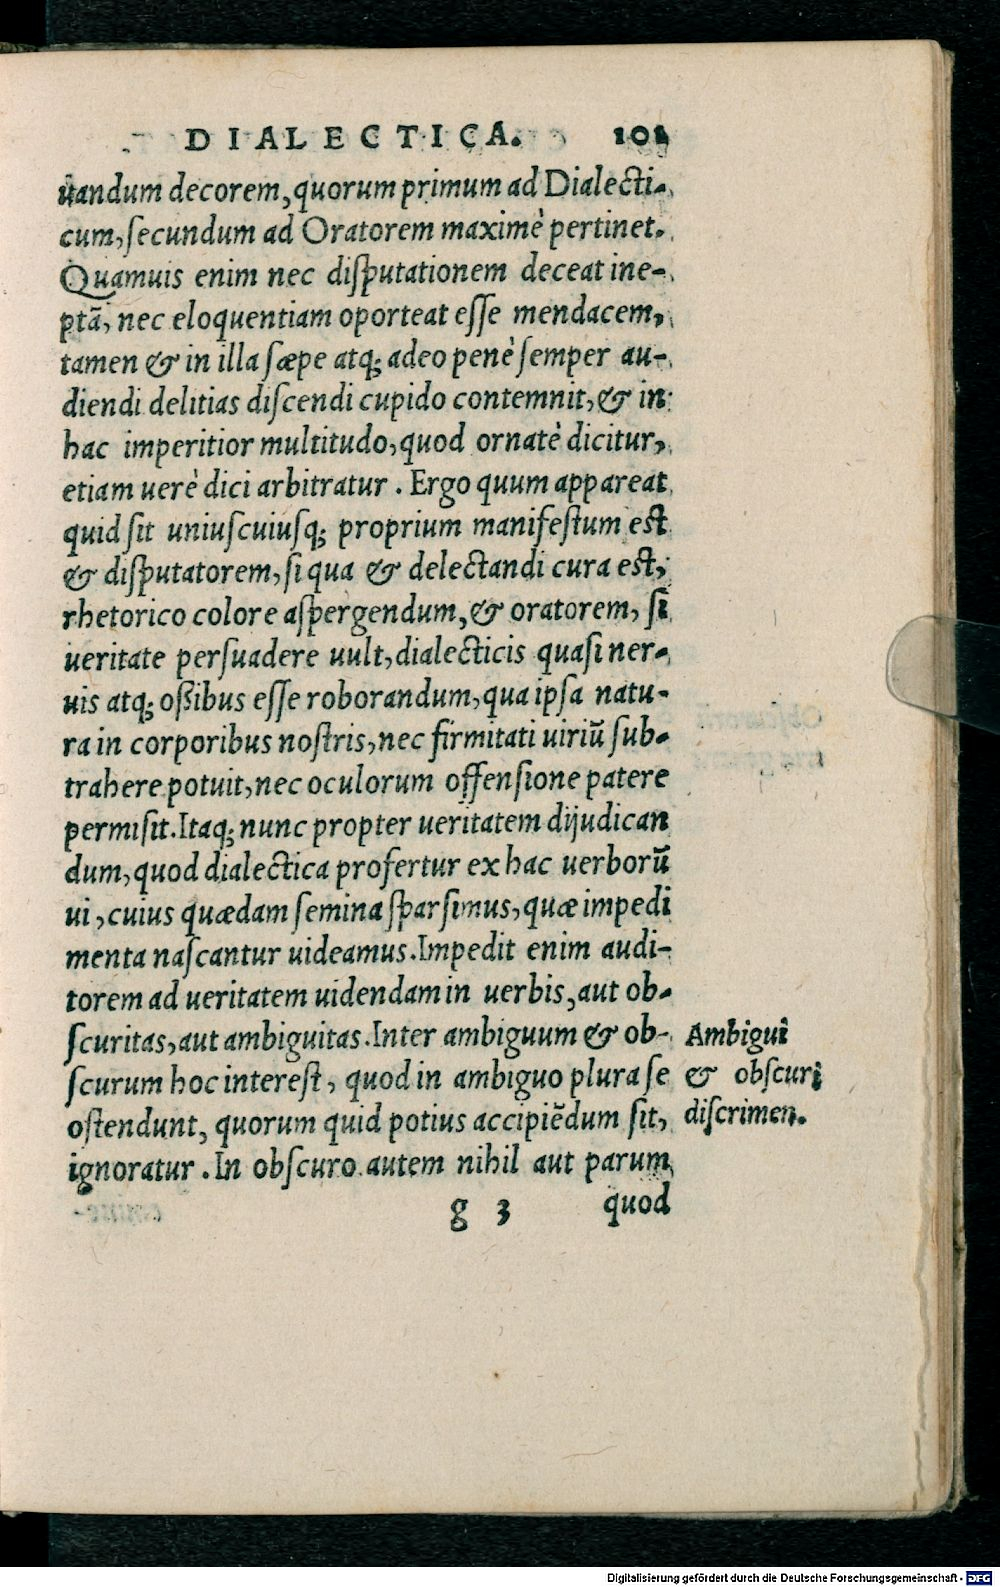 DIALECTICA. 101
uandum decorem, quorum primum ad Dialecti-
cum, secundum ad Oratorem maximè pertinet.
Quamuis enim nec disputationem deceat ine-
ptā, nec eloquentiam oporteat esse mendacem,
tamen & in illa sæpe atq; adeo penè semper au-
diendi delitias discendi cupido contemnit, & in
hac imperitior multitudo, quod ornatè dicitur,
etiam uerè dici arbitratur. Ergo quum appareat
quid sit uniuscuiusq; proprium manifestum est
& disputatorem, si qua & delectandi cura est,
rhetorico colore aspergendum, & oratorem, si
ueritate persuadere uult, dialecticis quasi ner-
uis atq; oßibus esse roborandum, qua ipsa natu-
ra in corporibus nostris, nec firmitati uiriū sub-
trahere potuit, nec oculorum offensione patere
permisit. Itaq; nunc propter ueritatem dijudican
dum, quod dialectica profertur ex hac uerborū
ui, cuius quædam semina sparsimus, quæ impedi
menta nascantur uideamus. Impedit enim audi-
torem ad ueritatem uidendam in uerbis, aut ob-
scuritas, aut ambiguitas. Inter ambiguum & ob-
scurum hoc interest, quod in ambiguo plura se
ostendunt, quorum quid potius accipiēdum sit,
ignoratur. In obscuro autem nihil aut parum
g 3 quod
Ambigui
& obscuri
discrimen.
Digitalisierung gefördert durch die Deutsche Forschungsgemeinschaft - DFG